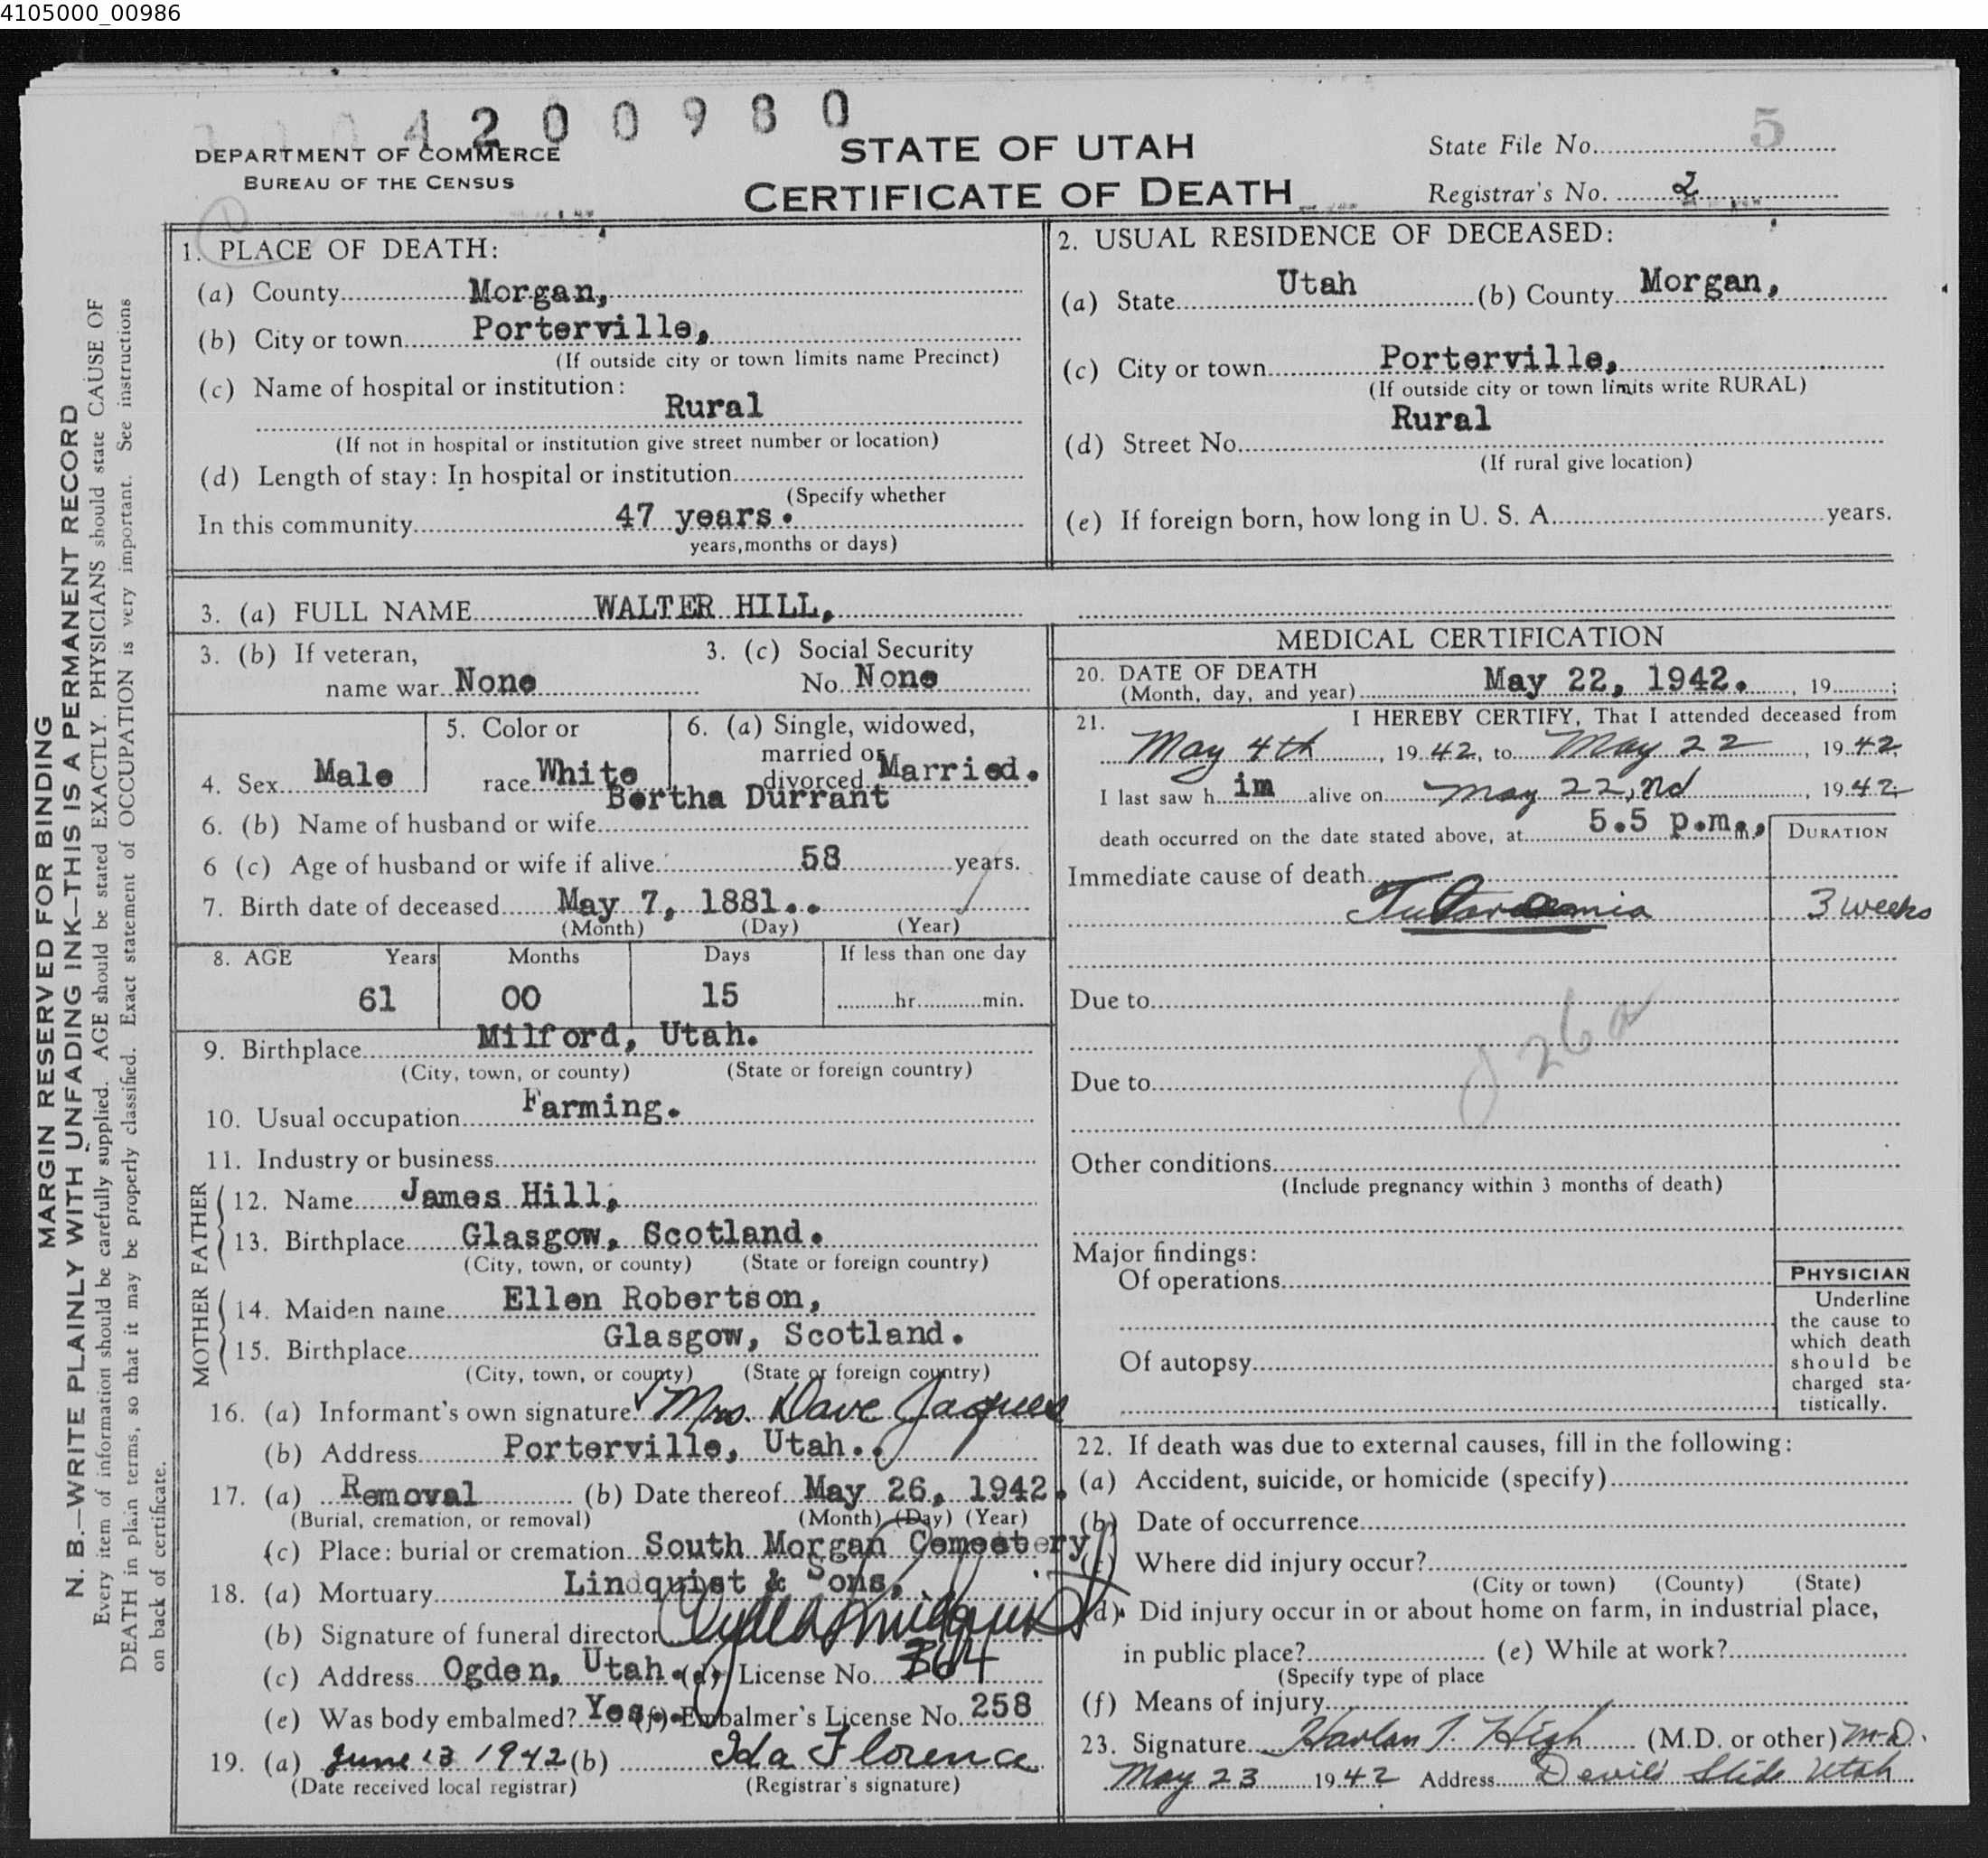 4105000_00986
4 2 0 0 9 8 0
DEPARTMENT OF COMMERCE
BUREAU OF THE CENSUS
STATE OF UTAH
CERTIFICATE OF DEATH
State File No. 5
Registrar's No. 2
MARGIN RESERVED FOR BINDING
N. B.—WRITE PLAINLY WITH UNFADING INK—THIS IS A PERMANENT RECORD
Every item of information should be carefully supplied. AGE should be stated EXACTLY. PHYSICIANS should state CAUSE OF
DEATH in plain terms, so that it may be properly classified. Exact statement of OCCUPATION is very important. See instructions
on back of certificate.
1. PLACE OF DEATH:
(a) County Morgan,
(b) City or town Porterville,
(If outside city or town limits name Precinct)
(c) Name of hospital or institution:
Rural
(If not in hospital or institution give street number or location)
(d) Length of stay: In hospital or institution
(Specify whether
In this community 47 years.
years, months or days)
2. USUAL RESIDENCE OF DECEASED:
(a) State Utah (b) County Morgan,
(c) City or town Porterville,
(If outside city or town limits write RURAL)
Rural
(d) Street No.
(If rural give location)
(e) If foreign born, how long in U. S. A. years.
3. (a) FULL NAME WALTER HILL,
3. (b) If veteran,
name war None
3. (c) Social Security
No. None
4. Sex Male
5. Color or
race White
6. (a) Single, widowed,
married or
divorced Married.
Bertha Durrant
6. (b) Name of husband or wife
6 (c) Age of husband or wife if alive 58 years.
7. Birth date of deceased May 7, 1881..
(Month) (Day) (Year)
8. AGE Years Months Days If less than one day
61 00 15 hr. min.
9. Birthplace Milford, Utah.
(City, town, or county) (State or foreign country)
10. Usual occupation Farming.
11. Industry or business
FATHER
12. Name James Hill,
13. Birthplace Glasgow, Scotland.
(City, town, or county) (State or foreign country)
MOTHER
14. Maiden name Ellen Robertson,
15. Birthplace Glasgow, Scotland.
(City, town, or county) (State or foreign country)
16. (a) Informant's own signature Mrs. Dave Jaques
(b) Address Porterville, Utah..
17. (a) Removal (b) Date thereof May 26, 1942.
(Burial, cremation, or removal) (Month) (Day) (Year)
(c) Place: burial or cremation South Morgan Cemeetery
18. (a) Mortuary Lindquist & Sons,
(b) Signature of funeral director
(c) Address Ogden, Utah. (d) License No. 364
(e) Was body embalmed? Yes.. (f) Embalmer's License No. 258
19. (a) June 13 1942 (b) Ida Florence
(Date received local registrar) (Registrar's signature)
MEDICAL CERTIFICATION
20. DATE OF DEATH
(Month, day, and year) May 22, 1942. , 19 ;
21. I HEREBY CERTIFY, That I attended deceased from
May 4th , 19 42, to May 22 , 19 42
I last saw h im alive on May 22, nd , 19 42;
death occurred on the date stated above, at 5.5 p.m., m.
DURATION
Immediate cause of death
Tularaemia 3 weeks
Due to
26a
Due to
Other conditions
(Include pregnancy within 3 months of death)
Major findings:
Of operations
Of autopsy
PHYSICIAN
Underline
the cause to
which death
should be
charged sta-
tistically.
22. If death was due to external causes, fill in the following:
(a) Accident, suicide, or homicide (specify)
(b) Date of occurrence
(c) Where did injury occur?
(City or town) (County) (State)
(d) Did injury occur in or about home on farm, in industrial place,
in public place? (e) While at work?
(Specify type of place
(f) Means of injury
23. Signature Harlan T. High (M.D. or other) M.D.
May 23 19 42 Address Devil's Slide Utah